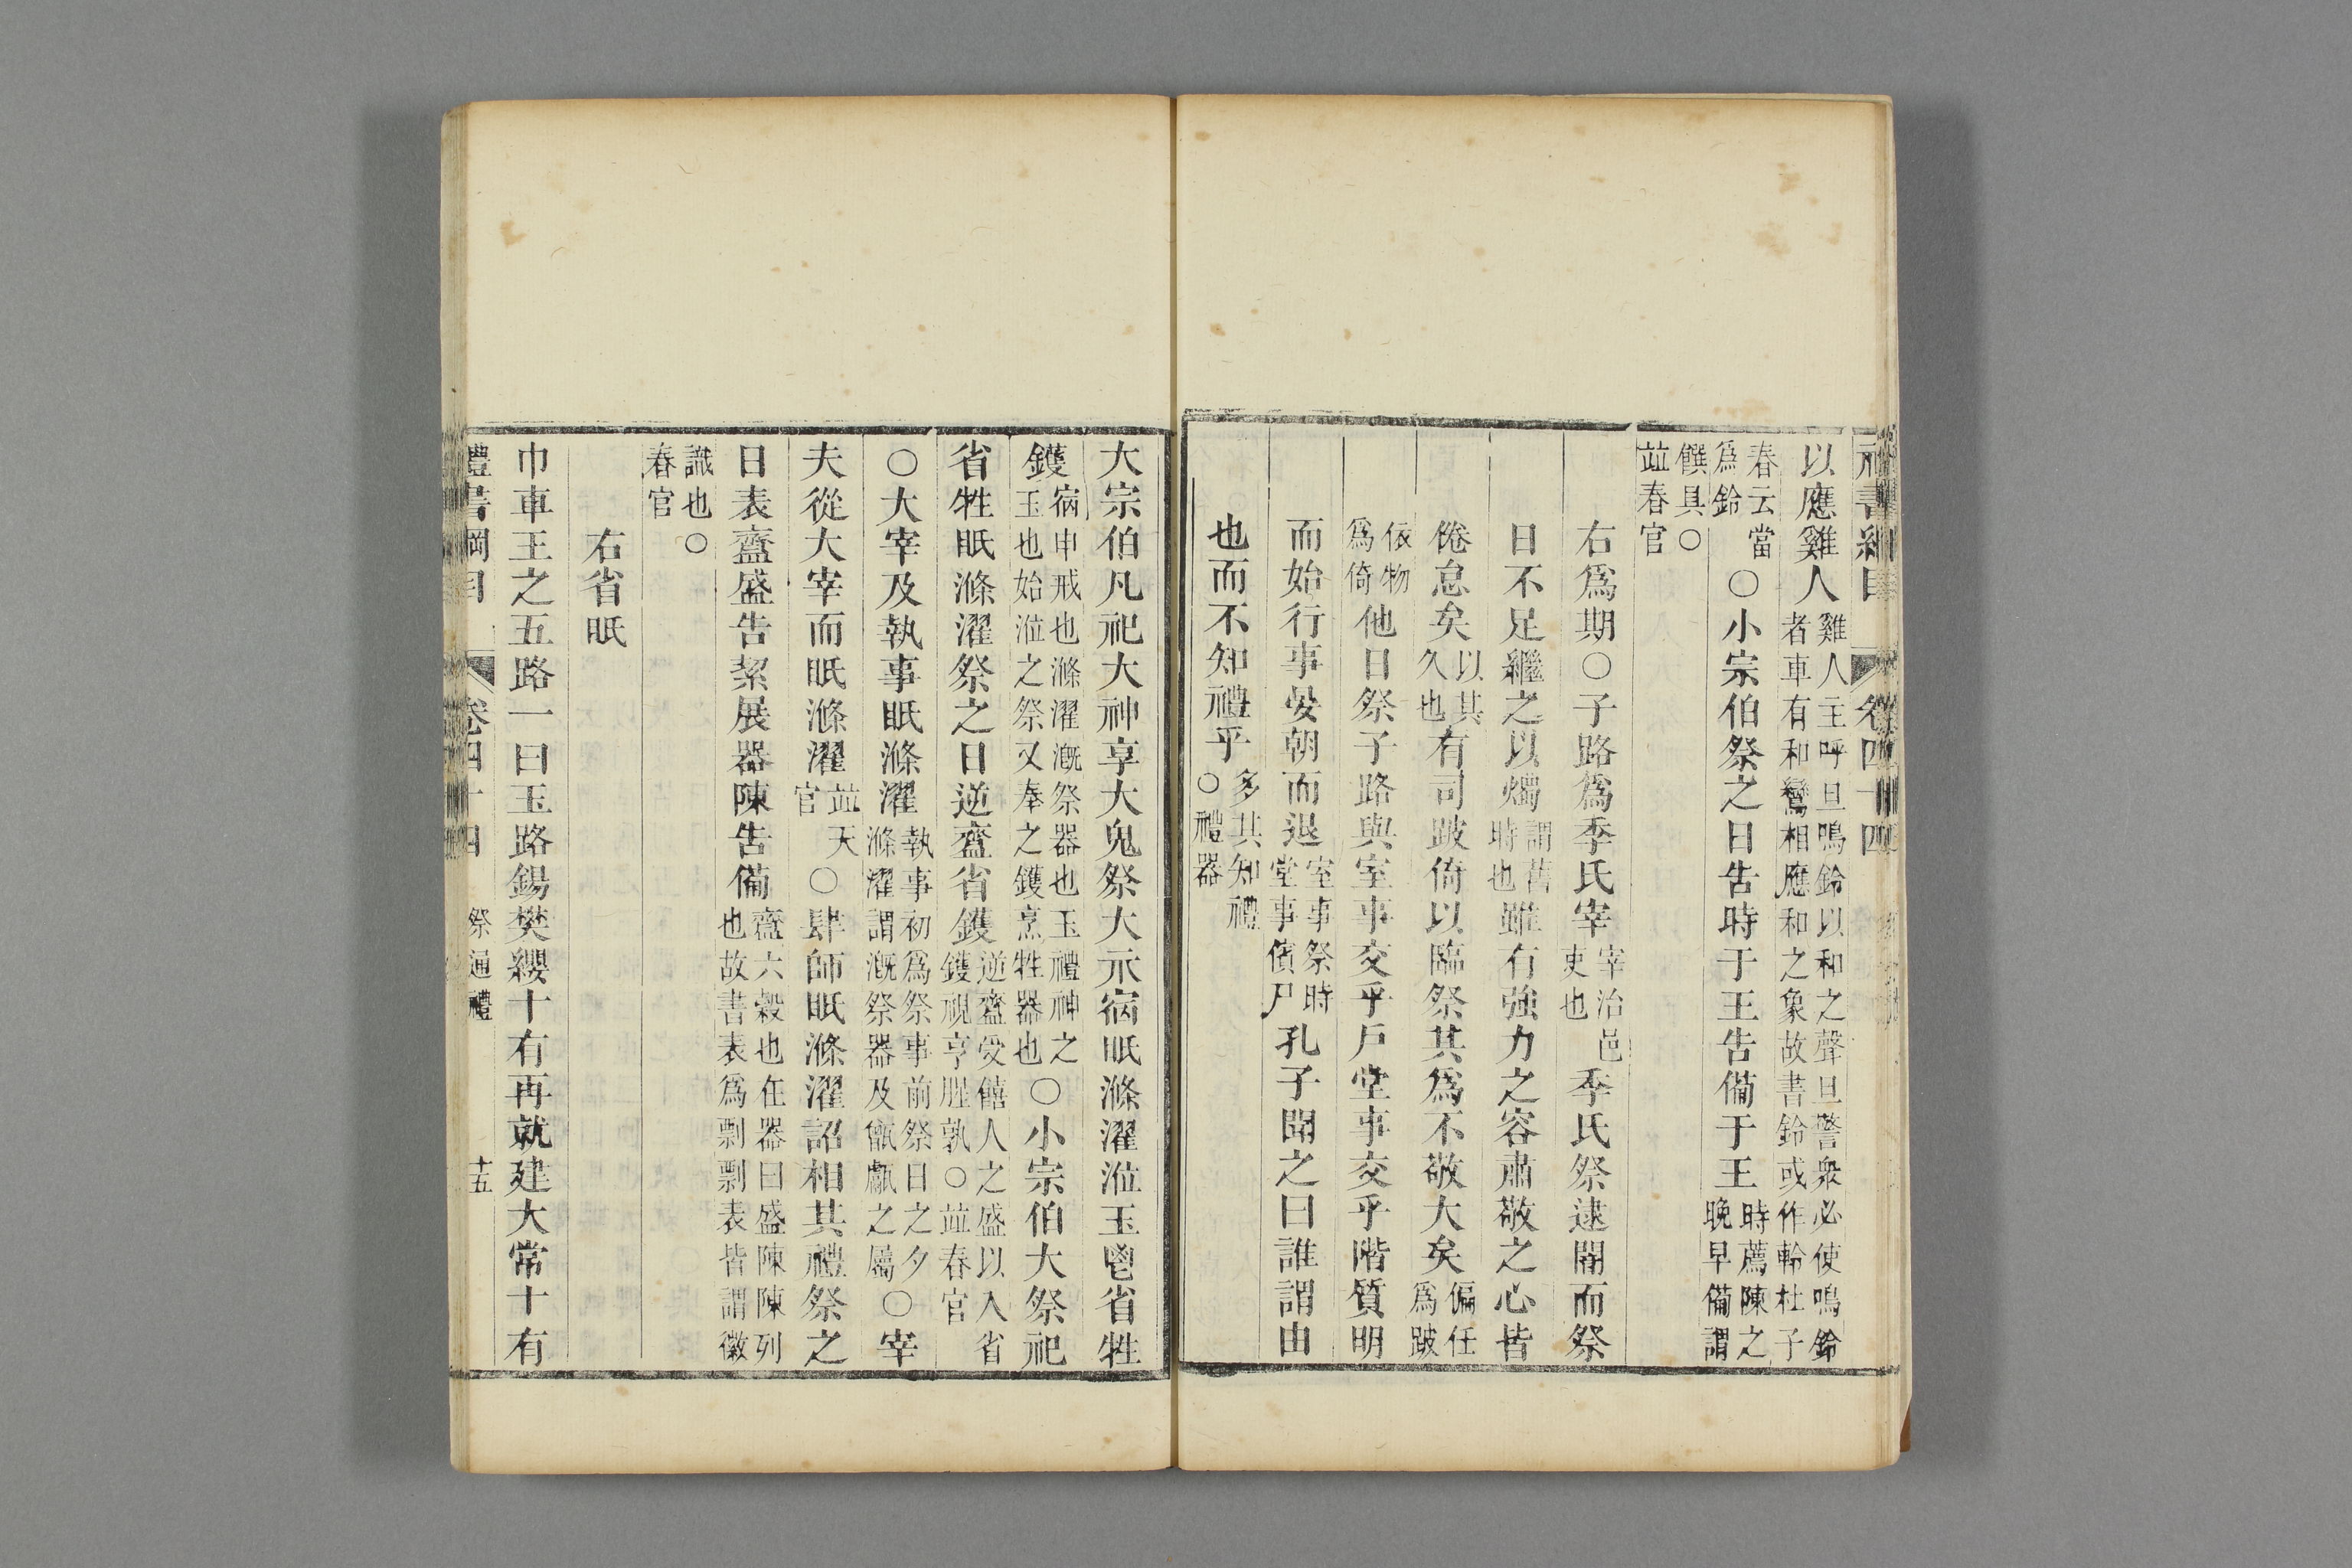 禮書綱目 卷四十四
以應雞人雞人主呼旦鳴鈴以和之聲旦警衆必使鳴鈴者車有和鸞相應和之象故書鈴或作軨杜子
春云當爲鈴○小宗伯祭之日告時于王告備于王時薦陳之晚早備謂
饌具○竝春官
右爲期○子路爲季氏宰宰治邑吏也季氏祭逮闇而祭
日不足繼之以燭謂舊時也雖有強力之容肅敬之心皆
倦怠矣以其久也有司跛倚以臨祭其爲不敬大矣偏任爲跛
依物爲倚他日祭子路與室事交乎戶堂事交乎階質明
而始行事晏朝而退室事祭時堂事儐尸孔子聞之曰誰謂由
也而不知禮乎多其知禮○禮器
大宗伯凡祀大神享大鬼祭大示宿眡滌濯涖玉鬯省牲
鑊宿申戒也滌濯溉祭器也玉禮神之玉也始涖之祭又奉之鑊烹牲器也○小宗伯大祭祀
省牲眡滌濯祭之日逆齍省鑊逆齍受饎人之盛以入省鑊視亨腥孰○竝春官
○大宰及執事眡滌濯執事初爲祭事前祭日之夕滌濯謂溉祭器及甑甗之屬○宰
夫從大宰而眡滌濯竝天官○肆師眡滌濯詔相其禮祭之
日表齍盛告絜展器陳告備齍六穀也在器曰盛陳陳列也故書表爲剽剽表皆謂徽
識也○春官
右省眡
巾車王之五路一曰玉路鍚樊纓十有再就建大常十有
禮書綱目 卷四十四 祭通禮 十五